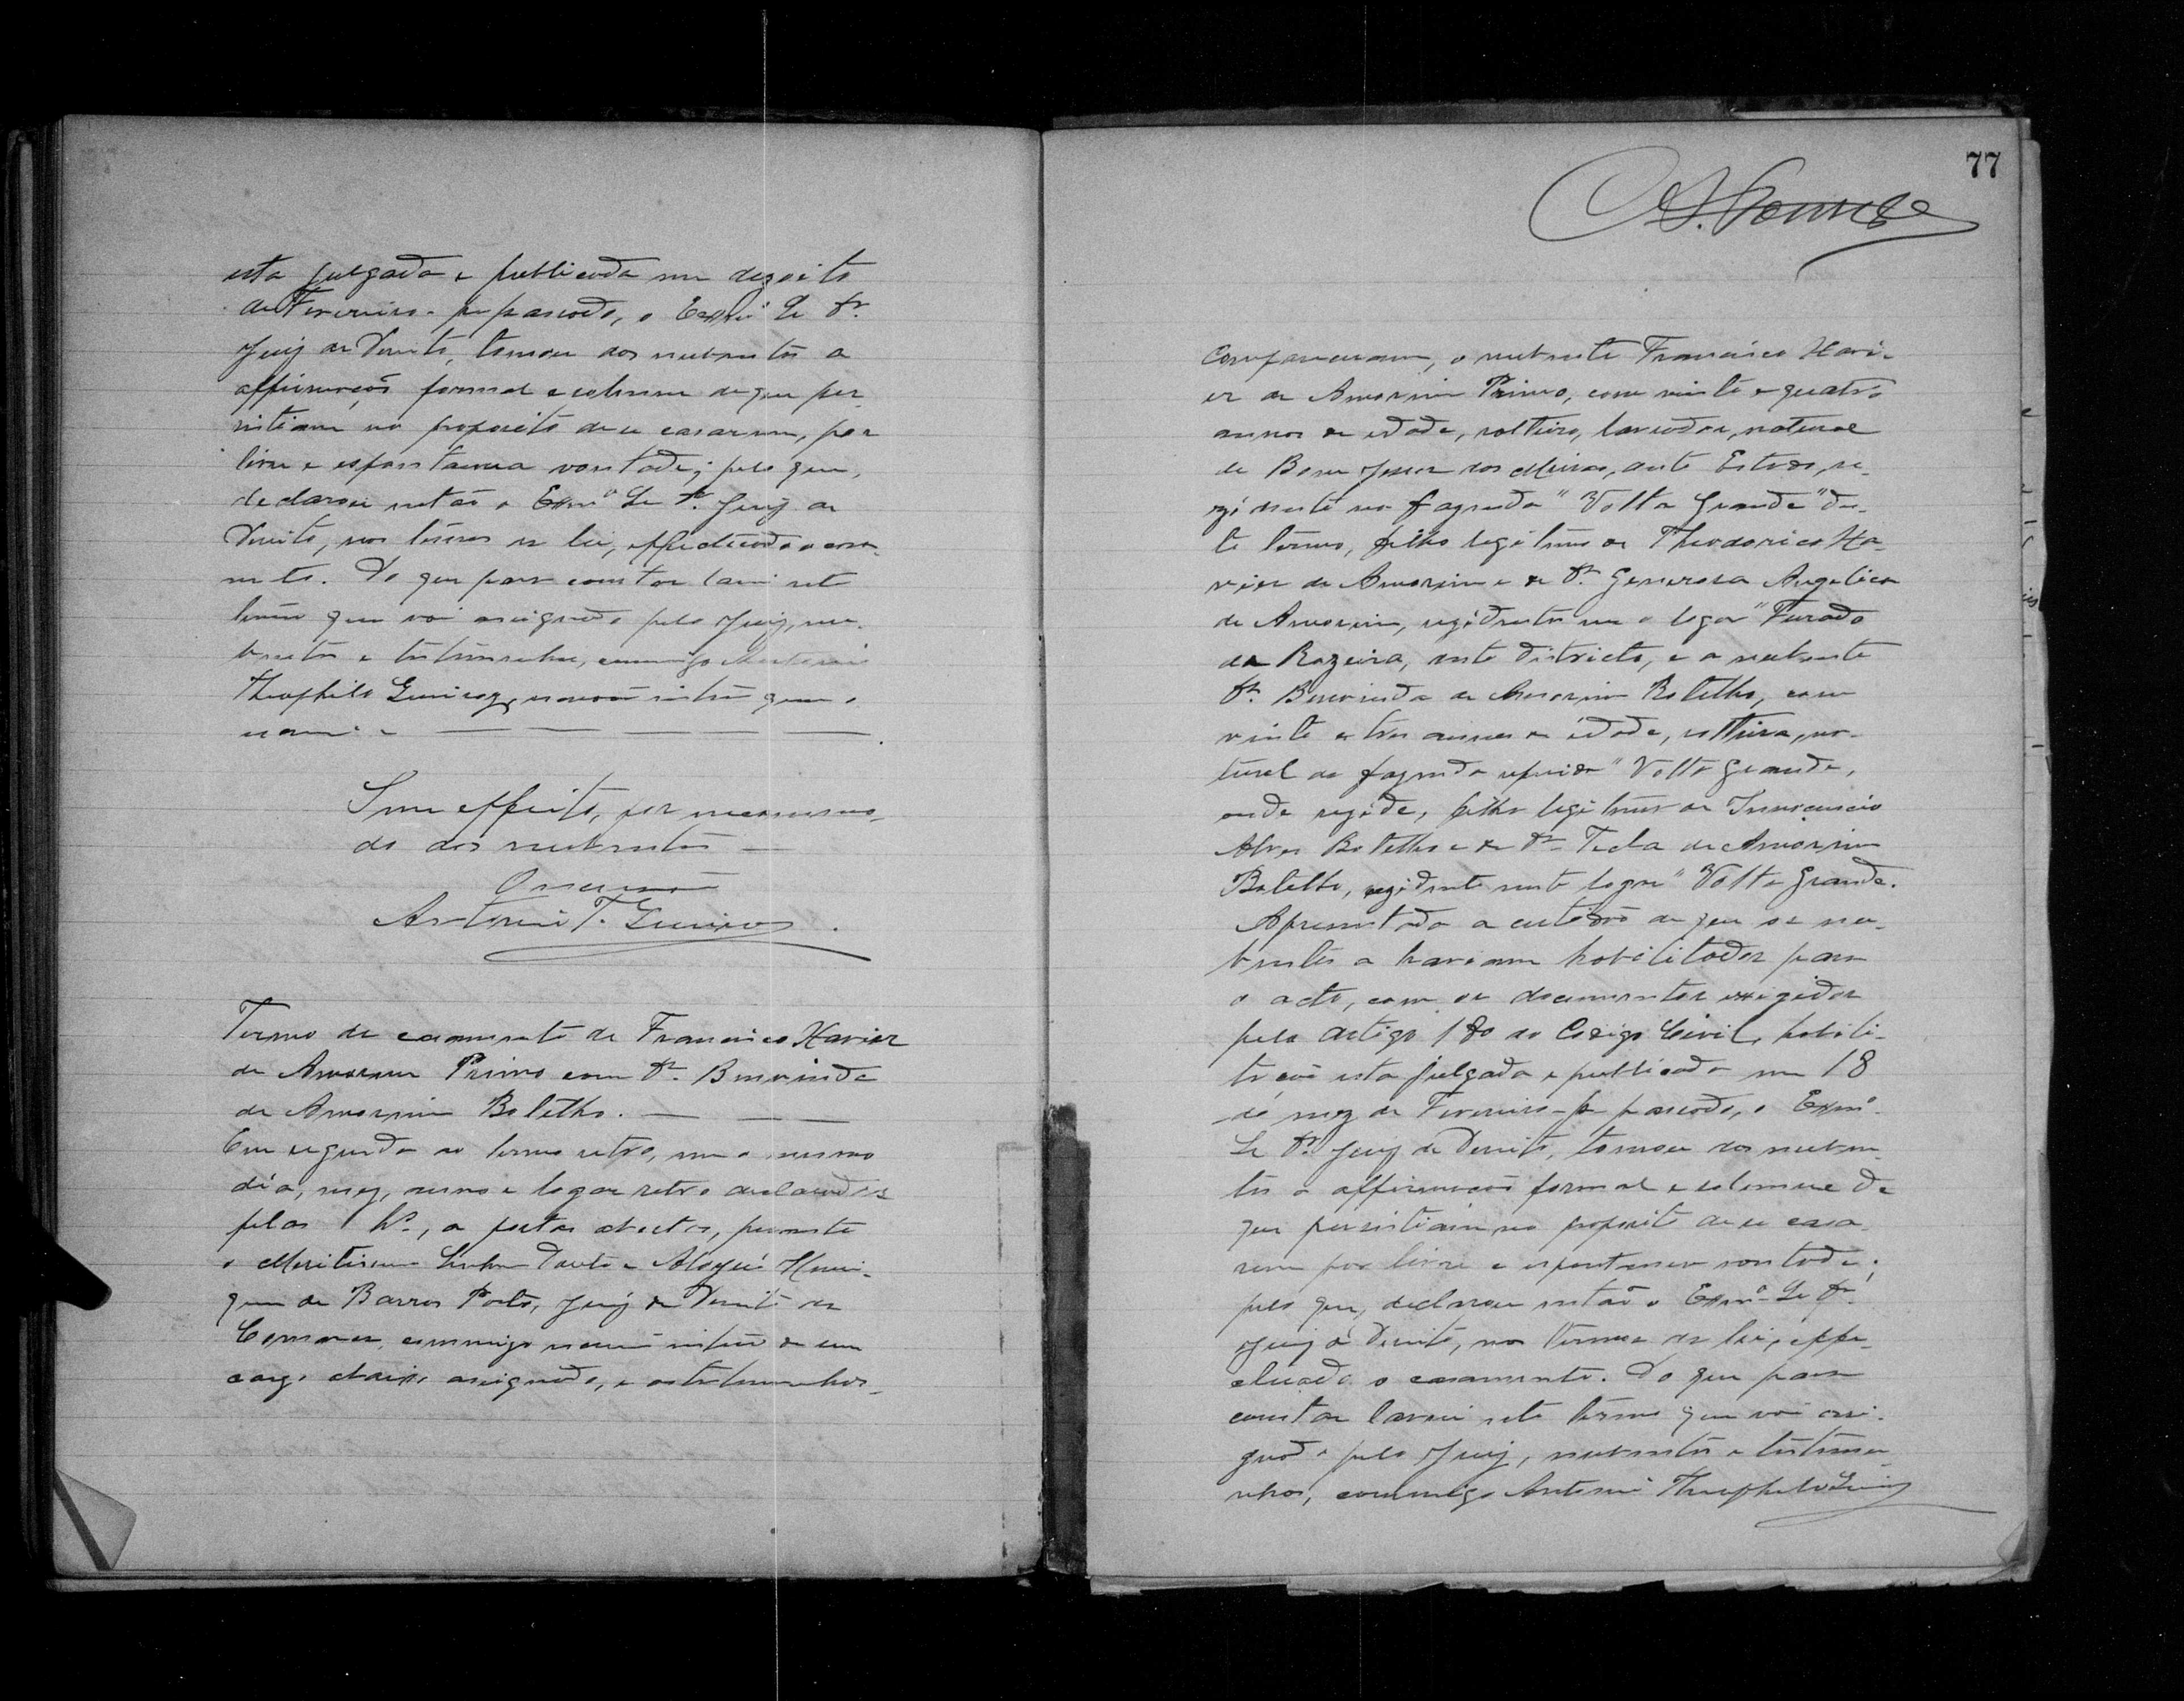 esta julgada e publicada em dezoito
de Fevereiro p. passado, o Exmº Sr Dr.
Juiz de Direito, tomou dos nubentes a
affirmação formal e solemne de que per-
sistiam no proposito de se casarem, por
livre e espontanea vontade; pelo que,
declarou então o Exmº Sr Dr. Juiz de
Direito, nos termos da lei, effectuado o casa-
mento. Do que para constar lavrei este
termo que vai assignado pelo Juiz, nu-
bentes e testemunhas, commigo Antonio
Theophilo escrivão interino que o
escrevi. e
Sem effeito, por
do dos nubentes
O escrivão
Antonio T.
Termo de casamento de Francisco Xavier
de Amorim Primo com Dª. Bemvinda
de Amorim Botelho.
Em seguida ao termo retro, em o mesmo
dia, mez, anno e logar retro declarados
pelas 1 hs., a portas abertas, perante
o Meritissimo Senhor Doutor Aloysio Henri-
que de Barros Porto, Juiz de Direito da
Comarca, commigo escrivão interino de seu
cargo abaixo assignado, e as testemunhas
77
Compareceram, o nubente Francisco Xavi-
er de Amorim Primo, com vinte e quatro
annos de edade, solteiro, lavrador, natural
de Bom Jesus dos Meiras, deste Estado, re-
zidente na fazenda "Volta Grande" des-
te termo, filho legitimo de Theodorico Xa-
vier de Amorim e de Dª. Generosa Angelica
de Amorim, rezidentes em o logar "Furado
da Rozeira, deste districto, e a nubente
Dª. Bemvinda de Amorim Botelho, com
vinte e tres annos de edade, solteira, na-
tural da fazenda referida "Volta Grande,
onde rezide, filha legitima de Innocencio
Alves Botelho e de Dª. Tecla de Amorim
Botelho, rezidente neste logar "Volta Grande.
Apresentada a certidão de que os nu-
bentes a haviam habilitados para
o acto, com os documentos exigidos
pelo artigo 180 do Codigo Civil, habili-
tação esta julgada e publicada em 18
do mez de Fevereiro p. passado, o Exmº
Sr Dr. Juiz de Direito, tomou dos nuben-
tes a affirmação formal e solemne de
que persistiam no proposito de se casa-
rem por livre e espontanea vontade;
pelo que, declarou então o Exmº Sr Dr.
Juiz de Direito, nos termos da lei, effe-
ctuado o casamento. Do que para
constar lavrei este termo que vai assi-
gnado pelo Juiz, nubentes e testemu-
nhas, commigo Antonio Theophilo